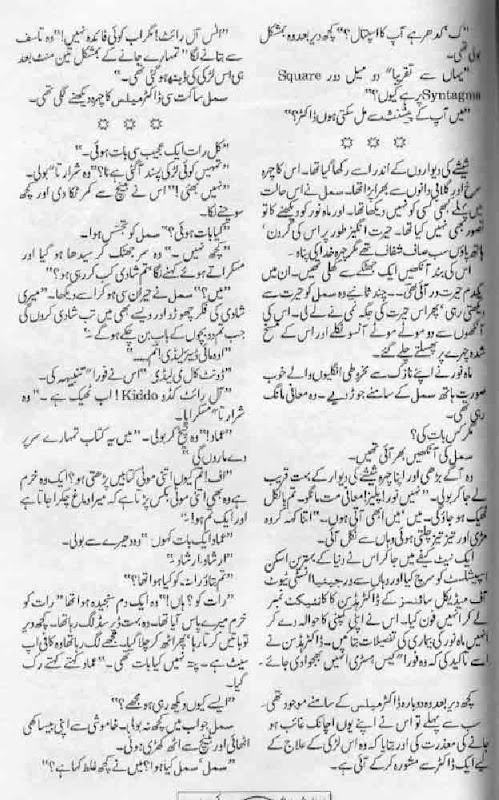 "ک "کدھر ہے آپ کا اسپتال؟" کچھ دیر بعد وہ بمشکل
بولی تھی۔
"یہاں سے تقریباً دو میل دور Square
Syntagma پر ہے کیوں؟"
"میں آپ کے پیشنٹ سے مل سکتی ہوں ڈاکٹر؟"
شیشے کی دیواروں کے اندر اسے رکھا گیا تھا۔ اس کا چہرہ
سرخ اور گلابی دانوں سے بھرا پڑا تھا۔ سمل نے اس حالت
میں پہلے بھی کسی کو نہیں دیکھا تھا۔ اور ماہ نور کو دیکھنے کا تو
تصور بھی نہیں کیا تھا۔ حیرت انگیز طور پر اس کی گردن'
ہاتھ پاؤں سب صاف شفاف تھے مگر چہرہ خدا کی پناہ۔
اس کی بند آنکھیں ایک جھٹکے سے کھلی تھیں۔ ان میں
یکدم حیرت در آئی تھی۔ چند ثانیے وہ سمل کو حیرت سے
دیکھتی رہی' پھر اس حیرت کی جگہ نمی نے لے لی۔ اس کی
آنکھوں سے دو موٹے موٹے آنسو نکلے اور اس کے مسخ
شدہ چہرے پر پھسلتے چلے گئے۔
ماہ نور نے اپنے نازک سے مخروطی انگلیوں والے خوب
صورت ہاتھ سمل کے سامنے جوڑ دیے۔ وہ معافی مانگ
رہی تھی۔
مگر کس بات کی؟
سمل کی آنکھیں بھر آئی تھیں۔
وہ آگے بڑھی اور اپنا چہرہ شیشے کی دیوار کے بہت قریب
لے جا کر بولی۔ "نہیں نور! پلیز! معافی مت مانگو۔ تم بالکل
ٹھیک ہو جاؤ گی۔ میں' میں ابھی آتی ہوں۔" اتنا کہہ کر وہ
مڑی اور تیز تیز چلتی ہوئی وہاں سے نکل آئی۔
ایک نیٹ کیفے میں جا کر اس نے دنیا کے بہترین اسکن
اسپیشلسٹ کو سرچ کیا اور وہاں سے انسٹی ٹیوٹ
آف میڈیکل سائنسز کے ڈاکٹر ہڈسن کا کانٹیکٹ نمبر
لے کر انہیں فون کیا۔ اس نے اپنی کمپنی کا حوالہ دے کر
انہیں ماہ نور کی بیماری کی تفصیلات بتائیں۔ ڈاکٹر ہڈسن نے
اسے تاکید کی کہ وہ فوراً" کیس ہسٹری انہیں بھجوا دی جائے۔
کچھ دیر بعد وہ دوبارہ ڈاکٹر میلنس کے سامنے موجود تھی۔
سب سے پہلے تو اس نے اپنے یوں اچانک غائب ہو
جانے کی معذرت کی اور بتایا کہ وہ اس لڑکی کے علاج کے
لیے ایک ڈاکٹر سے مشورہ کر کے آئی ہے۔
"اٹس آل رائٹ! مگر اب کوئی فائدہ نہیں!" وہ تاسف
سے بتانے لگا" تمہارے جانے کے بمشکل تین منٹ بعد
ہی اس لڑکی کی ڈیتھ ہو گئی تھی۔"
سمل ساکت سی ڈاکٹر میلنس کا چہرہ دیکھنے لگی تھی۔
"کل رات ایک عجیب سی بات ہوئی۔"
"تمہیں کوئی لڑکی پسند آ گئی ہے نا؟" وہ شرارتاً بولی۔
"نہیں بھئی!" اس نے بینچ سے کمر ٹکا دی اور کچھ
سوچنے لگا۔
"کیا بات ہوئی؟" سمل کو تجسس ہوا۔
"کچھ نہیں۔" وہ سر جھٹک کر سیدھا ہو گیا اور
مسکراتے ہوئے کہنے لگا "تم شادی کب کر رہی ہو؟"
"میں؟" سمل نے حیران سی ہو کر اسے دیکھا۔ "میری
شادی کی فکر چھوڑو اور ویسے بھی میں تب شادی کروں گی
جب تم دو بچوں کے باپ بن چکے ہو گے۔"
"او مائی ڈیئر لیڈی انم...."
"ڈونٹ کال می لیڈی" اس نے فوراً" تنبیہہ کی۔
"آل رائٹ کڈو Kiddo! اب ٹھیک ہے۔" وہ
شرارتاً" مسکرایا۔
"عماد!" وہ چیخ کر بولی۔ "میں یہ کتاب تمہارے سر پر
دے ماروں گی"
"اف! تم کیوں اتنی موٹی کتابیں پڑھتی ہو؟ ایک وہ خرم
ہے وہ بھی اتنی موٹی بکس پڑتا ہے کہ میرا دماغ چکرا جاتا ہے
اور ایک تم ہو!"
"عماد ایک بات کہوں" وہ دھیرے سے بولی۔
"ارشاد' ارشاد"
"تم بتاؤ رات کو کیا ہوا تھا؟"
"رات کو؟ ہاں!" وہ ایک دم سنجیدہ ہوا تھا" رات کو
خرم میرے پاس آیا تھا۔ وہ بہت ڈسٹرب لگ رہا تھا۔ کچھ دیر
تو باتیں کرتا رہا' پھر اٹھ کر چلا گیا۔ مجھے لگ رہا تھا وہ کافی اپ
سیٹ ہے۔ پتہ نہیں کیا بات تھی۔" عماد کہتے کہتے رک
گیا۔
"ایسے کیوں دیکھ رہی ہو مجھے؟"
سمل جواب میں کچھ نہ بولی۔ خاموشی سے اپنی بیساکھی
اٹھائی اور بینچ سے اٹھ کھڑی ہوئی۔
"سمل' سمل کیا ہوا؟ میں نے کچھ غلط کہا ہے؟"